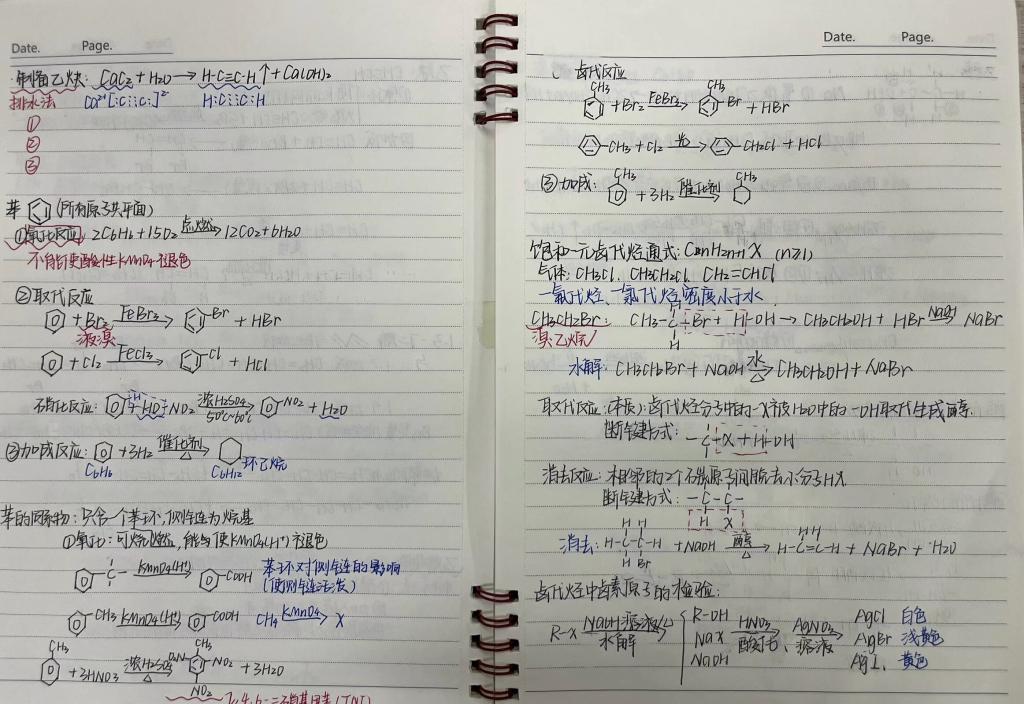 Date. Page.
·制备乙炔: CaC₂ + H₂O → H-C≡C-H↑ + Ca(OH)₂
排水法 Ca²⁺[:C⋮⋮C:]²⁻ H:C⋮⋮C:H
①
②
③
苯 (所有原子共平面)
①氧化反应: 2C₆H₆ + 15O₂ 点燃→ 12CO₂ + 6H₂O
不能使酸性KMnO₄褪色
②取代反应
+ Br₂ FeBr₃→ Br + HBr
液溴
+ Cl₂ FeCl₃→ Cl + HCl
硝化反应: H + HO NO₂ 浓H₂SO₄ 50℃~60℃→ NO₂ + H₂O
③加成反应: + 3H₂ 催化剂 △→
C₆H₆ C₆H₁₂ 环己烷
苯的同系物: 只含一个苯环,侧链为烷基
①氧化: 可燃 燃烧,能使KMnO₄(H⁺)褪色
-C- KMnO₄(H⁺)→ COOH 苯环对侧链的影响
(使侧链活泼)
CH₃ KMnO₄(H⁺)→ COOH CH₄ KMnO₄→ X
CH₃ + 3HNO₃ 浓H₂SO₄ △→ O₂N CH₃ NO₂ + 3H₂O
NO₂ 2,4,6-三硝基甲苯(TNT)
Date. Page.
卤代反应
CH₃ + Br₂ FeBr₃→ CH₃ Br + HBr
-CH₃ + Cl₂ 光→ -CH₂Cl + HCl
③加成: CH₃ + 3H₂ 催化剂→ CH₃
饱和一元卤代烃通式: CnH2n+1X (n≥1)
气体: CH₃Cl、CH₃CH₂Cl、CH₂=CHCl
一氟代烃、一氯代烃密度小于水
CH₃CH₂Br: CH₃-C-Br + H-OH → CH₃CH₂OH + HBr NaOH→ NaBr
溴乙烷
水解: CH₃CH₂Br + NaOH 水 △→ CH₃CH₂OH + NaBr
取代反应:(本质): 卤代烃分子中的-X被H₂O中的-OH取代生成醇.
断键方式: -C-X + H-OH
消去反应: 相邻的2个石碳原子间脱去小分子HX
断键方式: -C-C-
H X
H H H H
消去: H-C-C-H + NaOH 醇 △→ H-C=C-H + NaBr + H₂O
H Br
卤代烃中卤素原子的检验:
R-X NaOH溶液/△ 水解→ R-OH NaX NaOH HNO₃ 酸化→ AgNO₃ 溶液→
AgCl 白色
AgBr 浅黄色
AgI、黄色